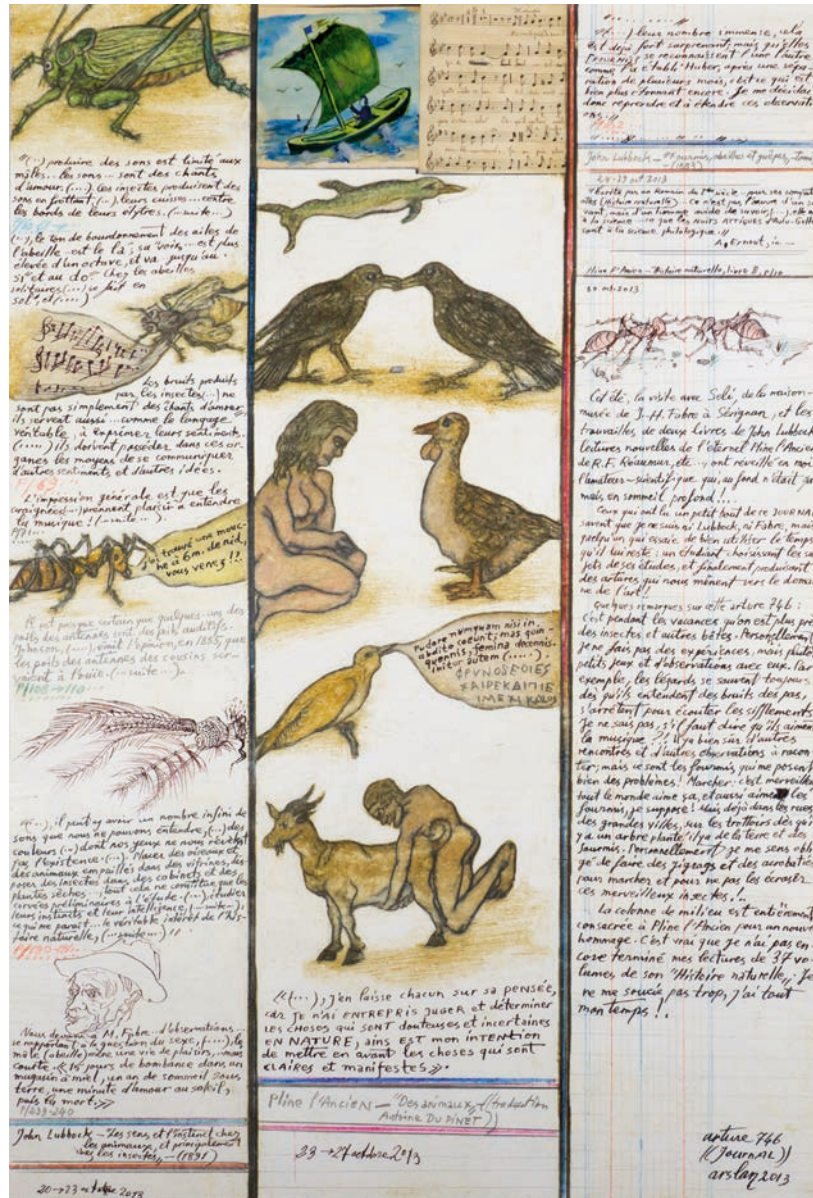 "(...) produire des sons est limité aux
mâles... les sons... sont des chants
d'amour (...). les insectes produisent des
sons en frottant (...) leurs cuisses... contre
les bords de leurs élytres. (...suite...)
(...), le ton de bourdonnement des ailes de
l'abeille est le la; sa voix... est plus
élevée d'un octave, et va jusqu'au
si et au do. Chez les abeilles
solitaires (...) se fait en
sol, et (....)
Les bruits produits
par les insectes (...) ne
sont pas simplement des chants d'amour,
ils servent aussi... comme le langage
véritable, à exprimer leurs sentiments.
(.....) ils doivent posséder dans ces or-
ganes les moyens de se communiquer
d'autres sentiments et d'autres idées.
P/63
L'impression générale est que les
araignées (...) prennent plaisir à entendre
la musique! (...suite...).
P/71...
j'ai trouvé une mouc-
he à 6m. de nid,
vous venez!!
Il est presque certain que quelques-uns des
poils des antennes sont des poils auditifs.
Johnson, (...), émit l'opinion, en 1855, que
les poils des antennes des cousins ser-
vaient à l'ouïe. (...suite...).
P/108 → 110...
(...), il peut y avoir un nombre infini de
sons que nous ne pouvons entendre, (...) des
couleurs (...) dont nos yeux ne nous révèlent
pas l'existence. (...). Placer des oiseaux et
des animaux empaillés dans des vitrines, dis-
poser des insectes dans des cabinets et des
plantes sèches... tout cela ne constitue que les
corvées préliminaires à l'étude. (...), étudier
leurs instincts et leur intelligence, (...suite...),
ce qui me paraît... le véritable intérêt de l'his-
toire naturelle, (...suite...)"
Nous devons à M. Fabre... d'observations...
se rapportant à la question du sexe, (....), le
mâle (abeille) mène une vie de plaisirs, ...mais
courte. «15 jours de bombance dans un
magasin à miel, un an de sommeil sous
terre, une minute d'amour au soleil,
puis la mort.»
P/239-240
John Lubbock — "Les sens et l'instinct chez
les animaux, et principalement
chez les insectes" — (1891)
20 → 23 octobre 2013
Pudore numquam nisi in
abdito coeunt; mas quin-
quennis, femina decennis.
Initur autem (.....).
«(...), j'en laisse chacun sur sa PENSÉE,
car je n'ai ENTREPRIS JUGER et déterminer
LES CHOSES qui SONT douteuses et incertaines
EN NATURE, ains EST mon INTENTION
de mettre en avant les choses qui sont
CLAIRES et manifestes».
Pline l'Ancien — "Des animaux" (traduction
Antoine DU PINET))
23 → 27 octobre 2013
(...) leur nombre immense, cela
est déjà fort surprenant; mais qu'elles
(FOURMIS) se reconnaissent l'une l'autre
comme l'a établi Huber, après une sépa-
ration de plusieurs mois, c'est ce qui est
bien plus étonnant encore. Je me décidai
donc reprendre et à étendre ces observati-
ons."
John Lubbock — "Fourmis, abeilles et guêpes"
24-29 oct 2013
A. Ernout, in...
Pline l'Ancien — Histoire naturelle, livre 8, P/10
30 oct. 2013
Cet été, la visite avec Selé, de la maison-
musée de J-H. Fabre à Sérignan, et les
trouvailles de deux livres de John Lubbock
lectures nouvelles de l'éternel Pline l'Ancien
de R.F. Réaumur, etc... ont réveillé en moi
l'amateur-scientifique qui, au fond n'était ja-
mais en sommeil profond!..
Ceux qui ont lu un petit bout de ce JOURNAL
savent que je ne suis ni Lubbock, ni Fabre, mais
quelqu'un qui essaie de bien utiliser le temps
qu'il lui reste: un étudiant choisissant les su-
jets de ses études, et finalement produisant
des artures qui nous mènent vers le domai-
ne de l'art!
Quelques remarques sur cette arture 746:
C'est pendant les vacances qu'on est plus près
des insectes et autres bêtes. Personnellement,
je ne fais pas des expériences, mais plutôt
petits jeux et d'observations avec eux. Par
exemple, les lézards se sauvent toujours
dès qu'ils entendent des bruits des pas,
s'arrêtent pour écouter les sifflements.
Je ne sais pas, s'il faut dire qu'ils aiment
la musique?!! Il y a bien sûr d'autres
rencontres et d'autres observations à racon-
ter; mais ce sont les fourmis, qui me posent
bien des problèmes! Marcher, c'est merveilleux
tout le monde aime ça, et aussi aiment les
fourmis, je suppose! Mais déjà dans les rues
des grandes villes, sur les trottoirs dès qu'il
y a un arbre planté il y a de la terre et des
fourmis. Personnellement je me sens obli-
gé de faire des zigzags et des acrobaties
pour marcher et pour ne pas les écraser
ces merveilleux insectes!..
La colonne de milieu est entièrement
consacrée à Pline l'Ancien pour un nouvel
hommage. C'est vrai que je n'ai pas en-
core terminé mes lectures de 37 vo-
lumes de son "Histoire naturelle"; Je
ne me soucie pas trop, j'ai tout
mon temps!.
arture 746
((JOURNAL))
arslan 2013